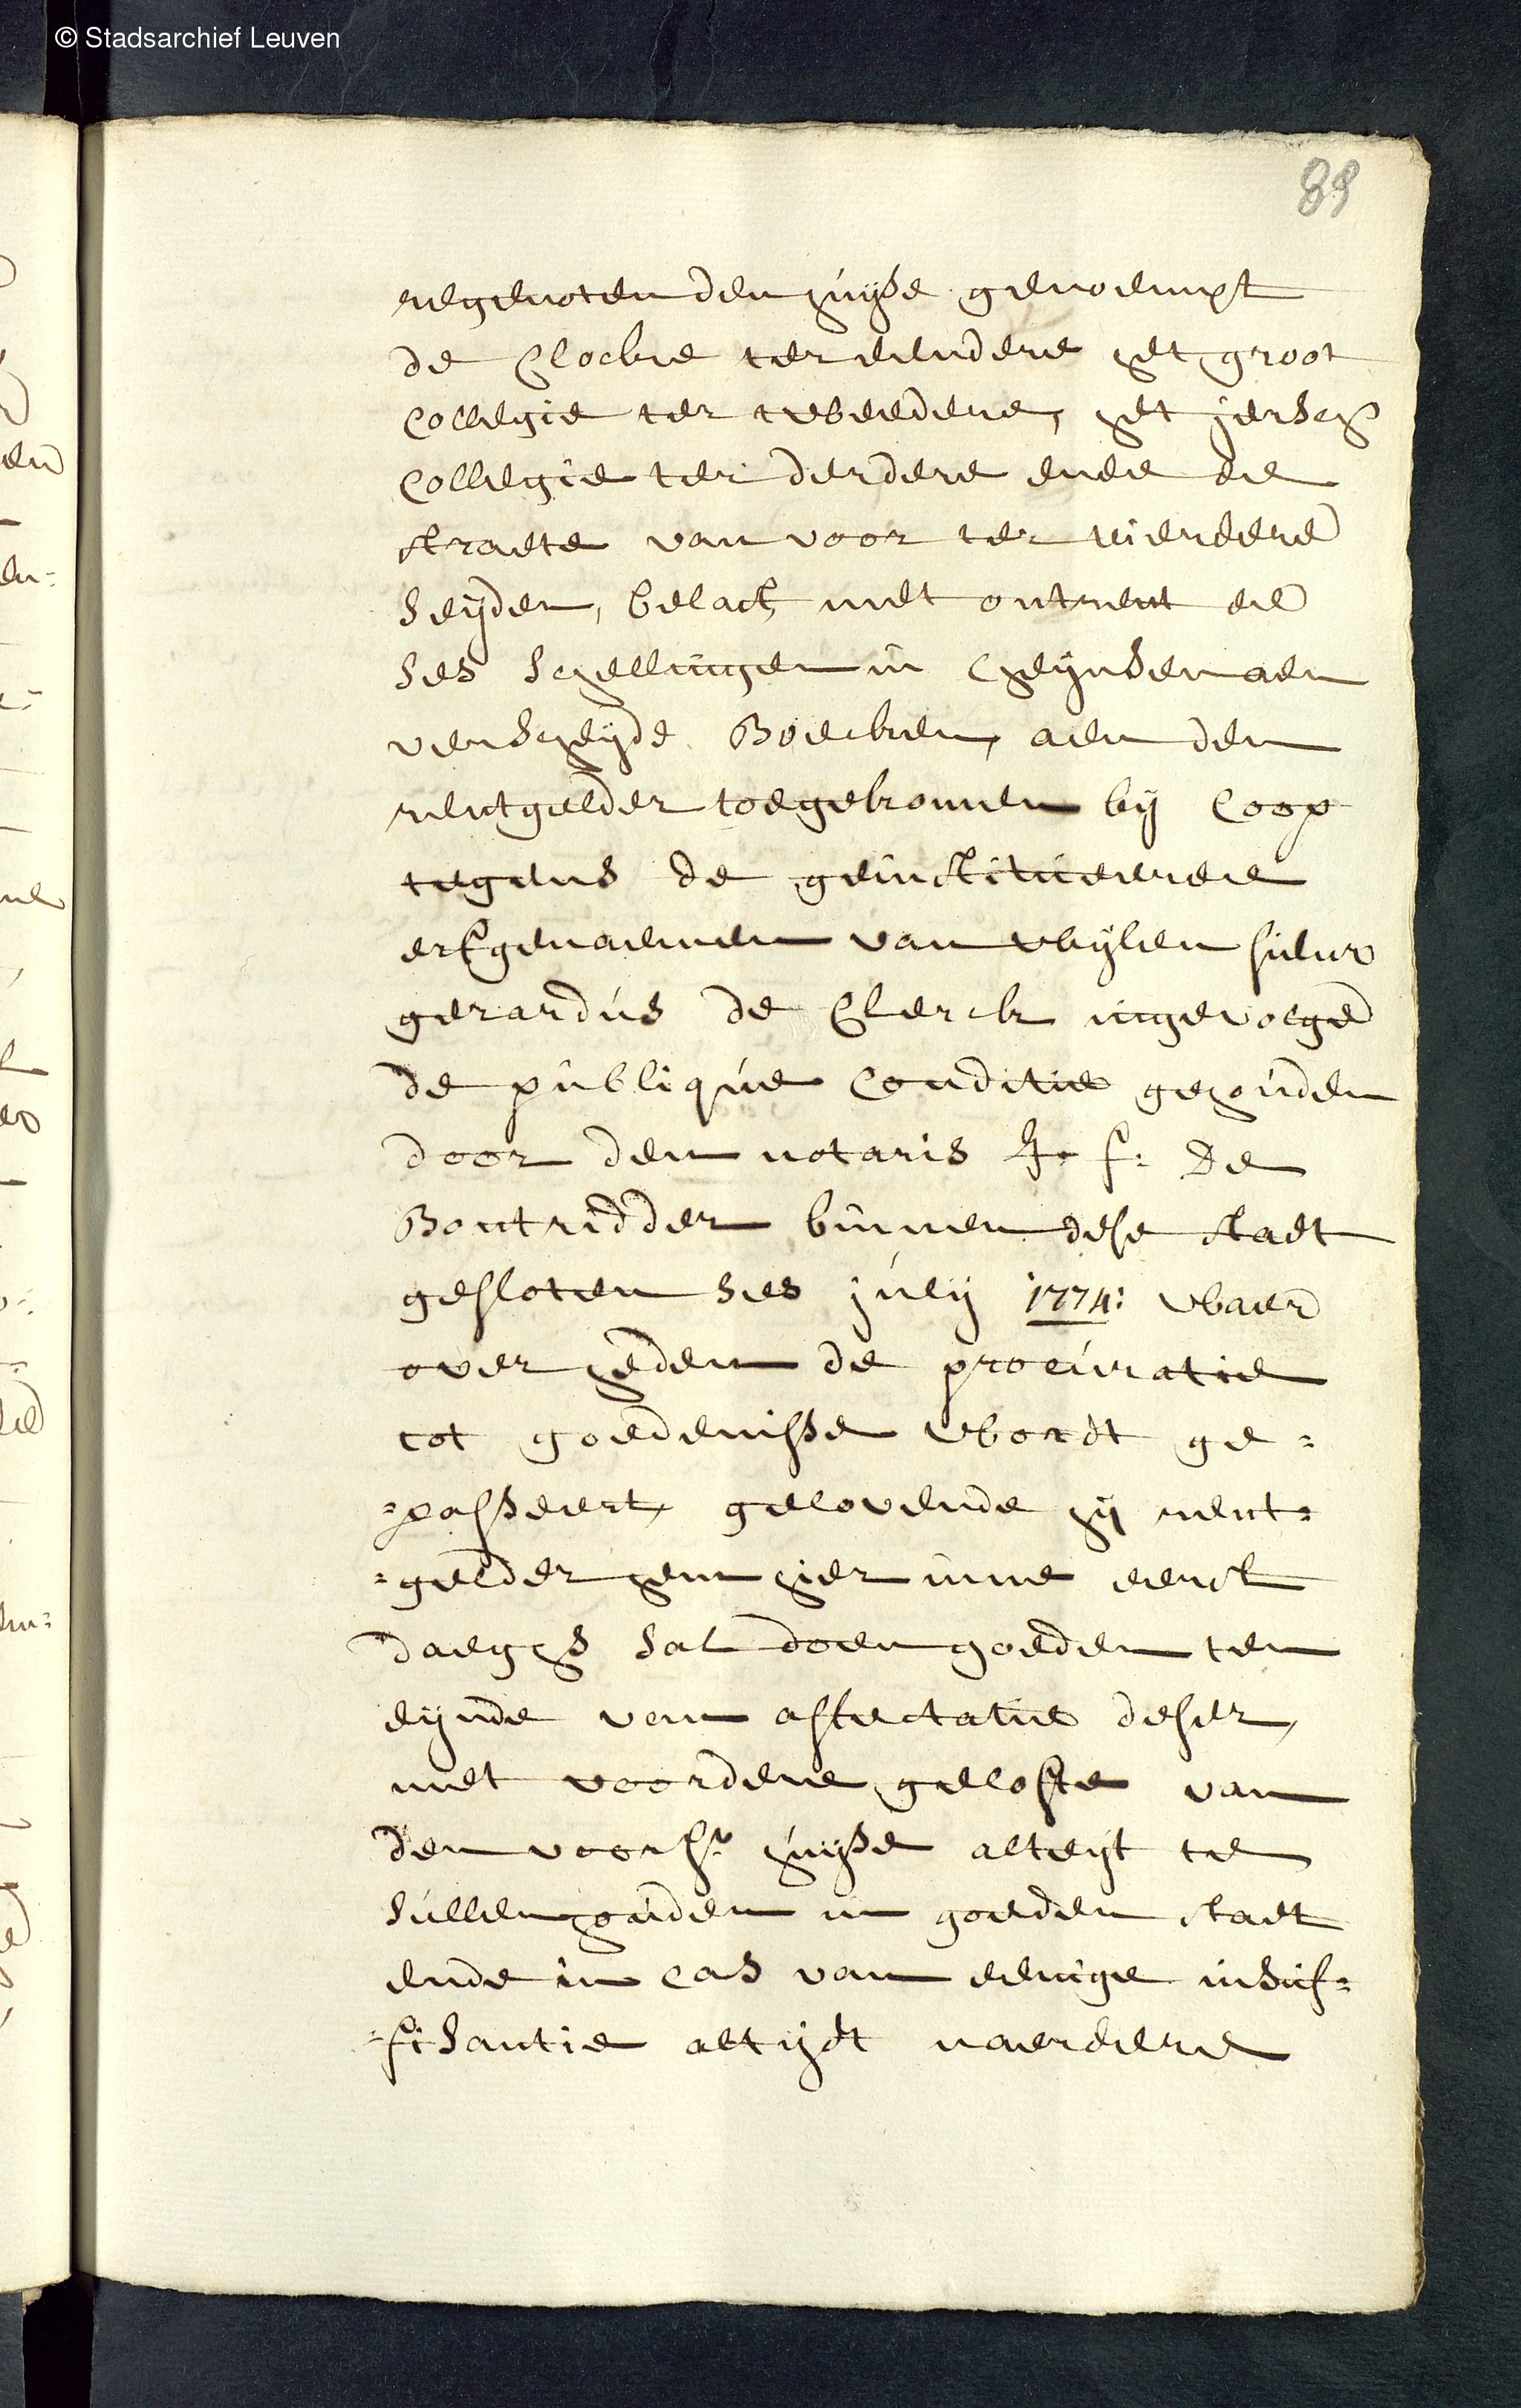 © Stadsarchief Leuven
89
regenoten den huijse genoempt
de Clocke ter eendere het groot
Collegie ter tweedere, het jersch
Collegie ter derdere ende de
straete van voor ter vierdere
seijden, belast met ontrent ee
ses schellingen in cheijnsen aen
verscheijde Boecken, aen den
rentgelder toegekomen bij Coop
tegens de geinstitueerde
erfgenaemen van wijlen sieur
gerardus de Clerck ingevolge
de publique Conditie gehouden
door den notaris f: De
Bontridder binnen dese stadt
gesloten ses julij 1774: waer
over heden de procuratie
tot goedenisse wordt ge=
=passeert, gelovende hij rent=
=gelder hem hier inne eerst
daeghs sal doen goeden ten
eijnde van affectatie deser,
met voordere gelofte van
den voors: huijse alteijt te
sullen houden in goeden staet
ende in cas van eenige insuf=
=fisantie altijdt naerdere